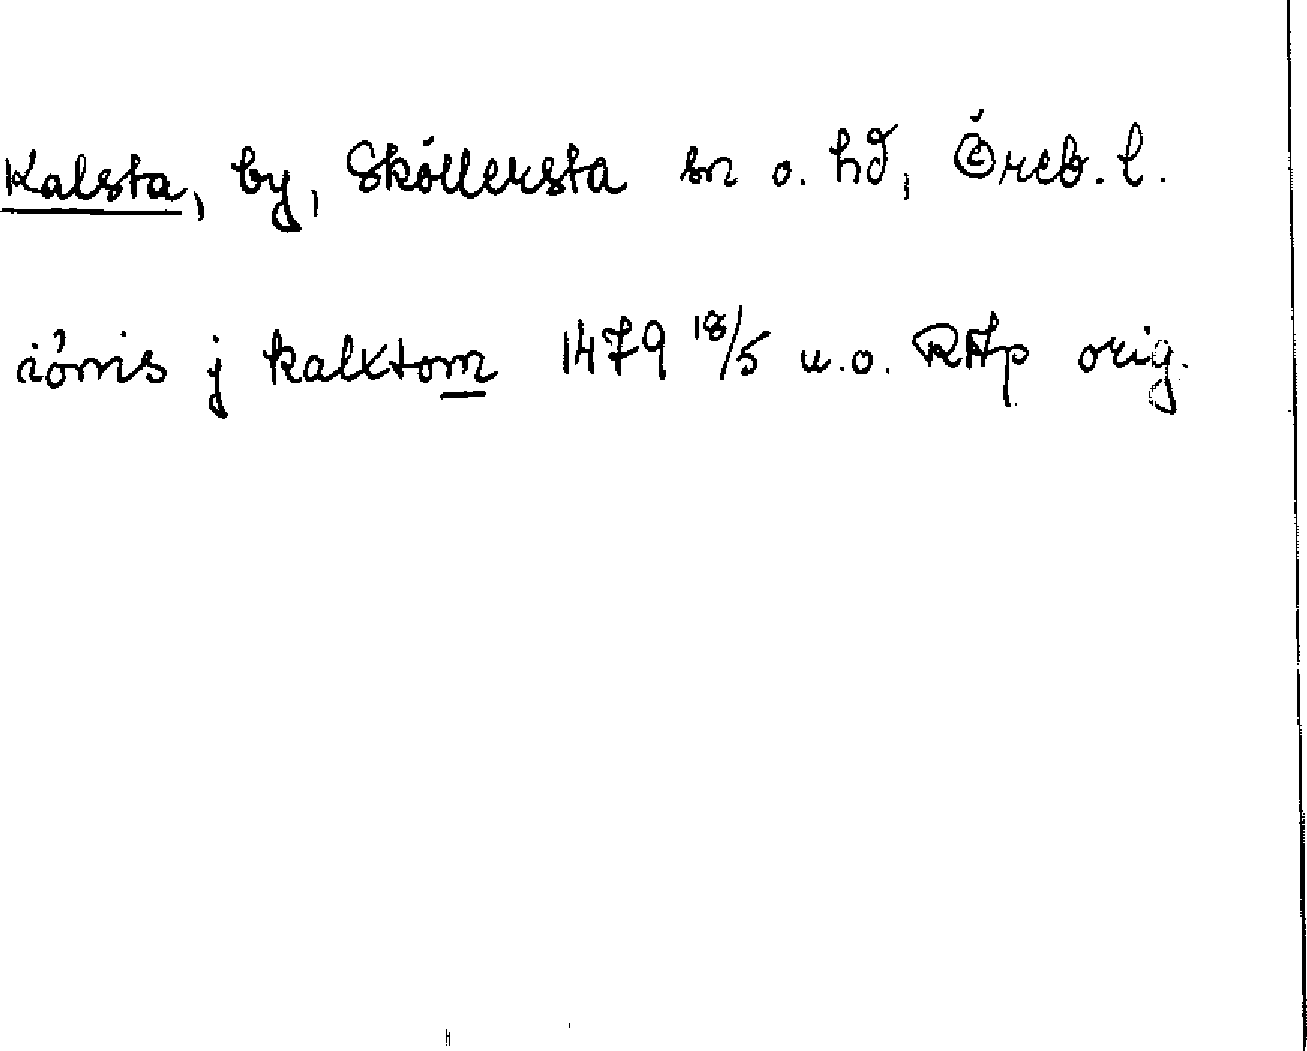 Kalsta, by, Sköllersta sn o. hd, Öreb. l.
iönis j kalxtom 1479 18/5 u.o. RAp orig.